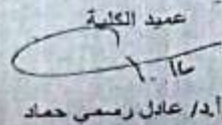 عميد الكلية
أ.د/ عادل رسمي حماد